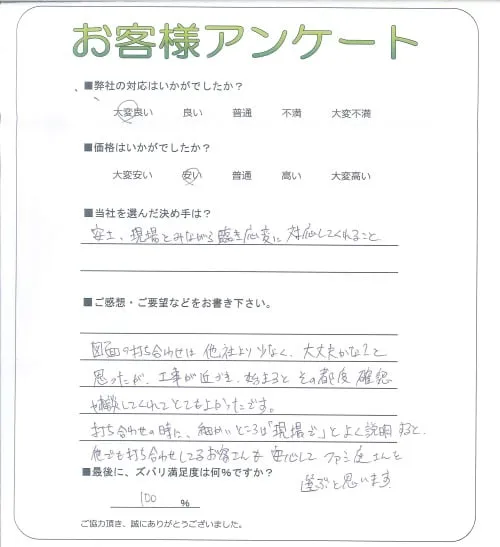 お客様アンケート
■弊社の対応はいかがでしたか？
大変良い 良い 普通 不満 大変不満
■価格はいかがでしたか？
大変安い 安い 普通 高い 大変高い
■当社を選んだ決め手は？
安さ、現場とみながら臨き応変に対応してくれること
■ご感想・ご要望などをお書き下さい。
図面の打ち合わせは他社より少なく、大丈夫かな？と
思ったが、工事が近づき、始まるとその都度確認
相談してくれてとてもよかったです。
打ち合わせの時に、細かいところは「現場で」とよく説明すると、
他でも打ち合わせしてるお客さんも安心してファミ庭さんを
選ぶと思います。
■最後に、ズバリ満足度は何％ですか？
100 ％
ご協力頂き、誠にありがとうございました。